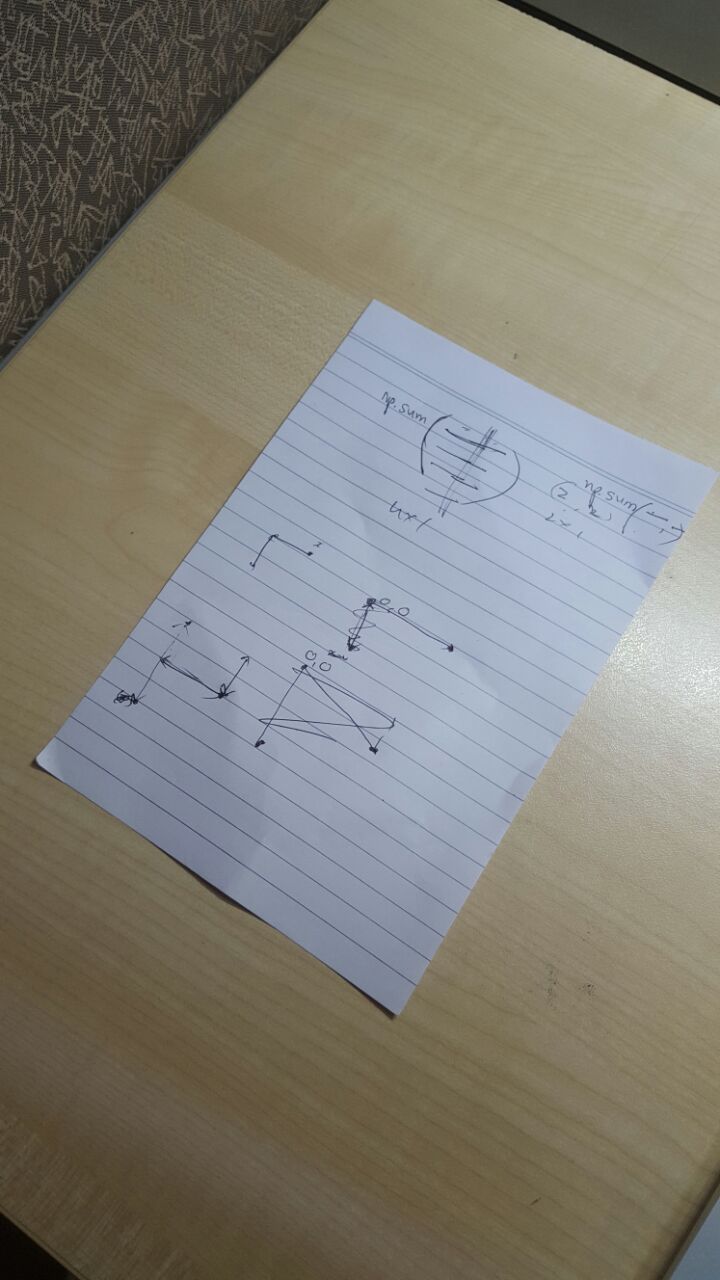 np.sum
4x1
np.sum(
2x1
0,0
0,0